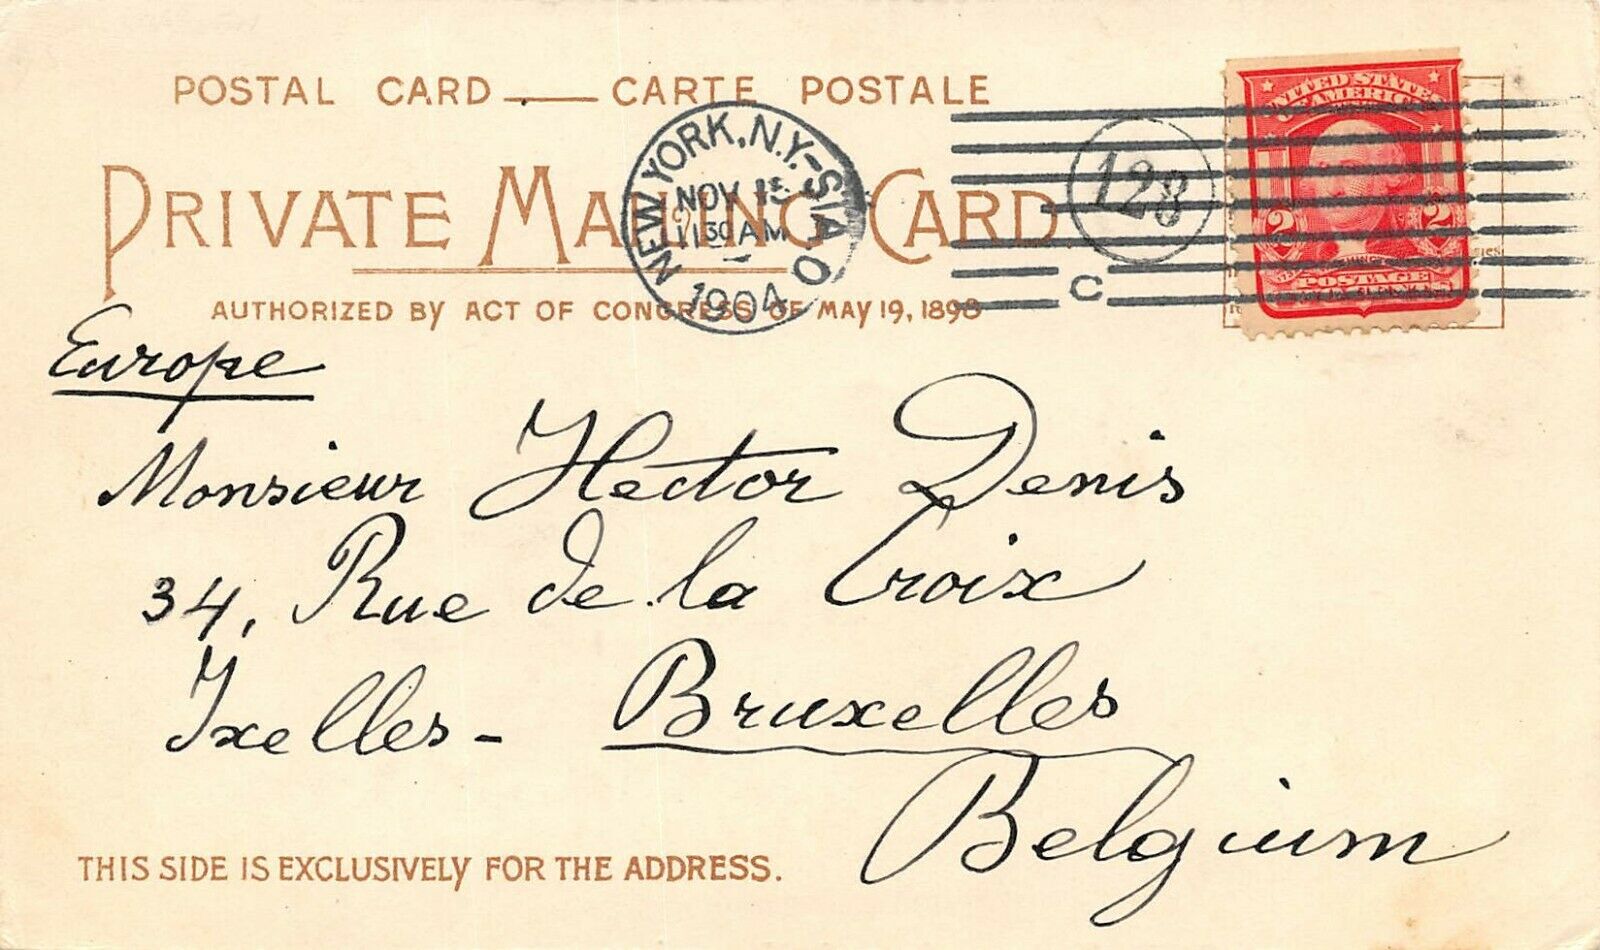 POSTAL CARD — CARTE POSTALE
PRIVATE MAILING CARD.
AUTHORIZED BY ACT OF CONGRESS OF MAY 19, 1898
NEW YORK, N.Y.-STA. O
NOV 1
1130AM
1904
128
C
UNITED STATES
OF AMERICA
2 2
POSTAGE
Europe
Monsieur Hector Denis
34, Rue de la Croix
Ixelles - Bruxelles
Belgium
THIS SIDE IS EXCLUSIVELY FOR THE ADDRESS.